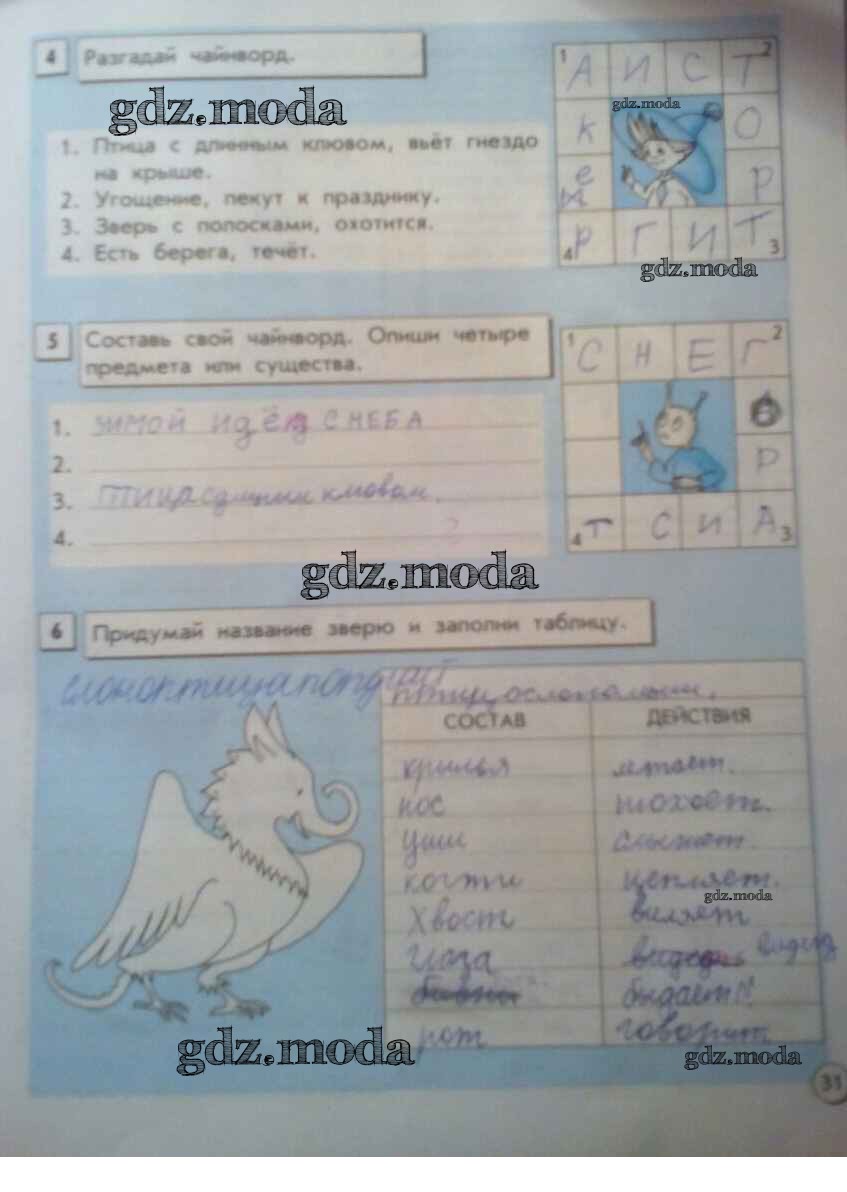 4 Разгадай чайнворд.
gdz.moda
1. Птица с длинным клювом, вьёт гнездо
на крыше.
2. Угощение, пекут к празднику.
3. Зверь с полосками, охотится.
4. Есть берега, течёт.
1 А И С Т 2
gdz.moda
К О
е Р
4 Р Г И Т 3
gdz.moda
5 Составь свой чайнворд. Опиши четыре
предмета или существа.
1. ЗИМОЙ ИДЁТ С НЕБА
2.
3. птица клювом.
4.
1 С Н Е Г 2
Р
4 Т С И А 3
gdz.moda
6 Придумай название зверю и заполни таблицу.
слоноптицапопугай
СОСТАВ ДЕЙСТВИЯ
крылья летает.
нос нюхает.
уши слышат.
когти цепляет.
gdz.moda
хвост виляет
глаза
бивни быдает
рот говорит
gdz.moda
gdz.moda
31